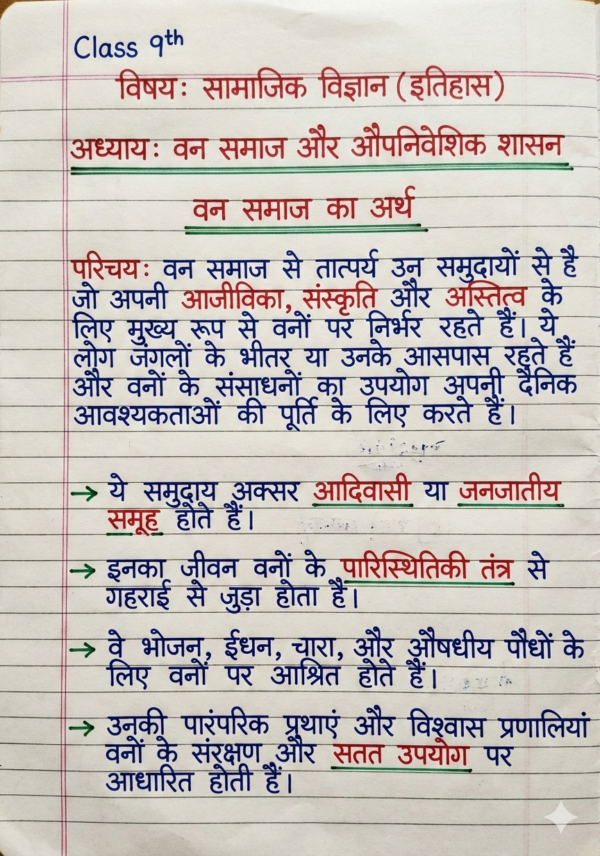 Class 9th
विषय: सामाजिक विज्ञान (इतिहास)
अध्याय: वन समाज और औपनिवेशिक शासन
वन समाज का अर्थ
परिचय: वन समाज से तात्पर्य उन समुदायों से है
जो अपनी आजीविका, संस्कृति और अस्तित्व के
लिए मुख्य रूप से वनों पर निर्भर रहते हैं। ये
लोग जंगलों के भीतर या उनके आसपास रहते हैं
और वनों के संसाधनों का उपयोग अपनी दैनिक
आवश्यकताओं की पूर्ति के लिए करते हैं।
→ ये समुदाय अक्सर आदिवासी या जनजातीय
समूह होते हैं।
→ इनका जीवन वनों के पारिस्थितिकी तंत्र से
गहराई से जुड़ा होता है।
→ वे भोजन, ईंधन, चारा, और औषधीय पौधों के
लिए वनों पर आश्रित होते हैं।
→ उनकी पारंपरिक प्रथाएं और विश्वास प्रणालियां
वनों के संरक्षण और सतत उपयोग पर
आधारित होती हैं।